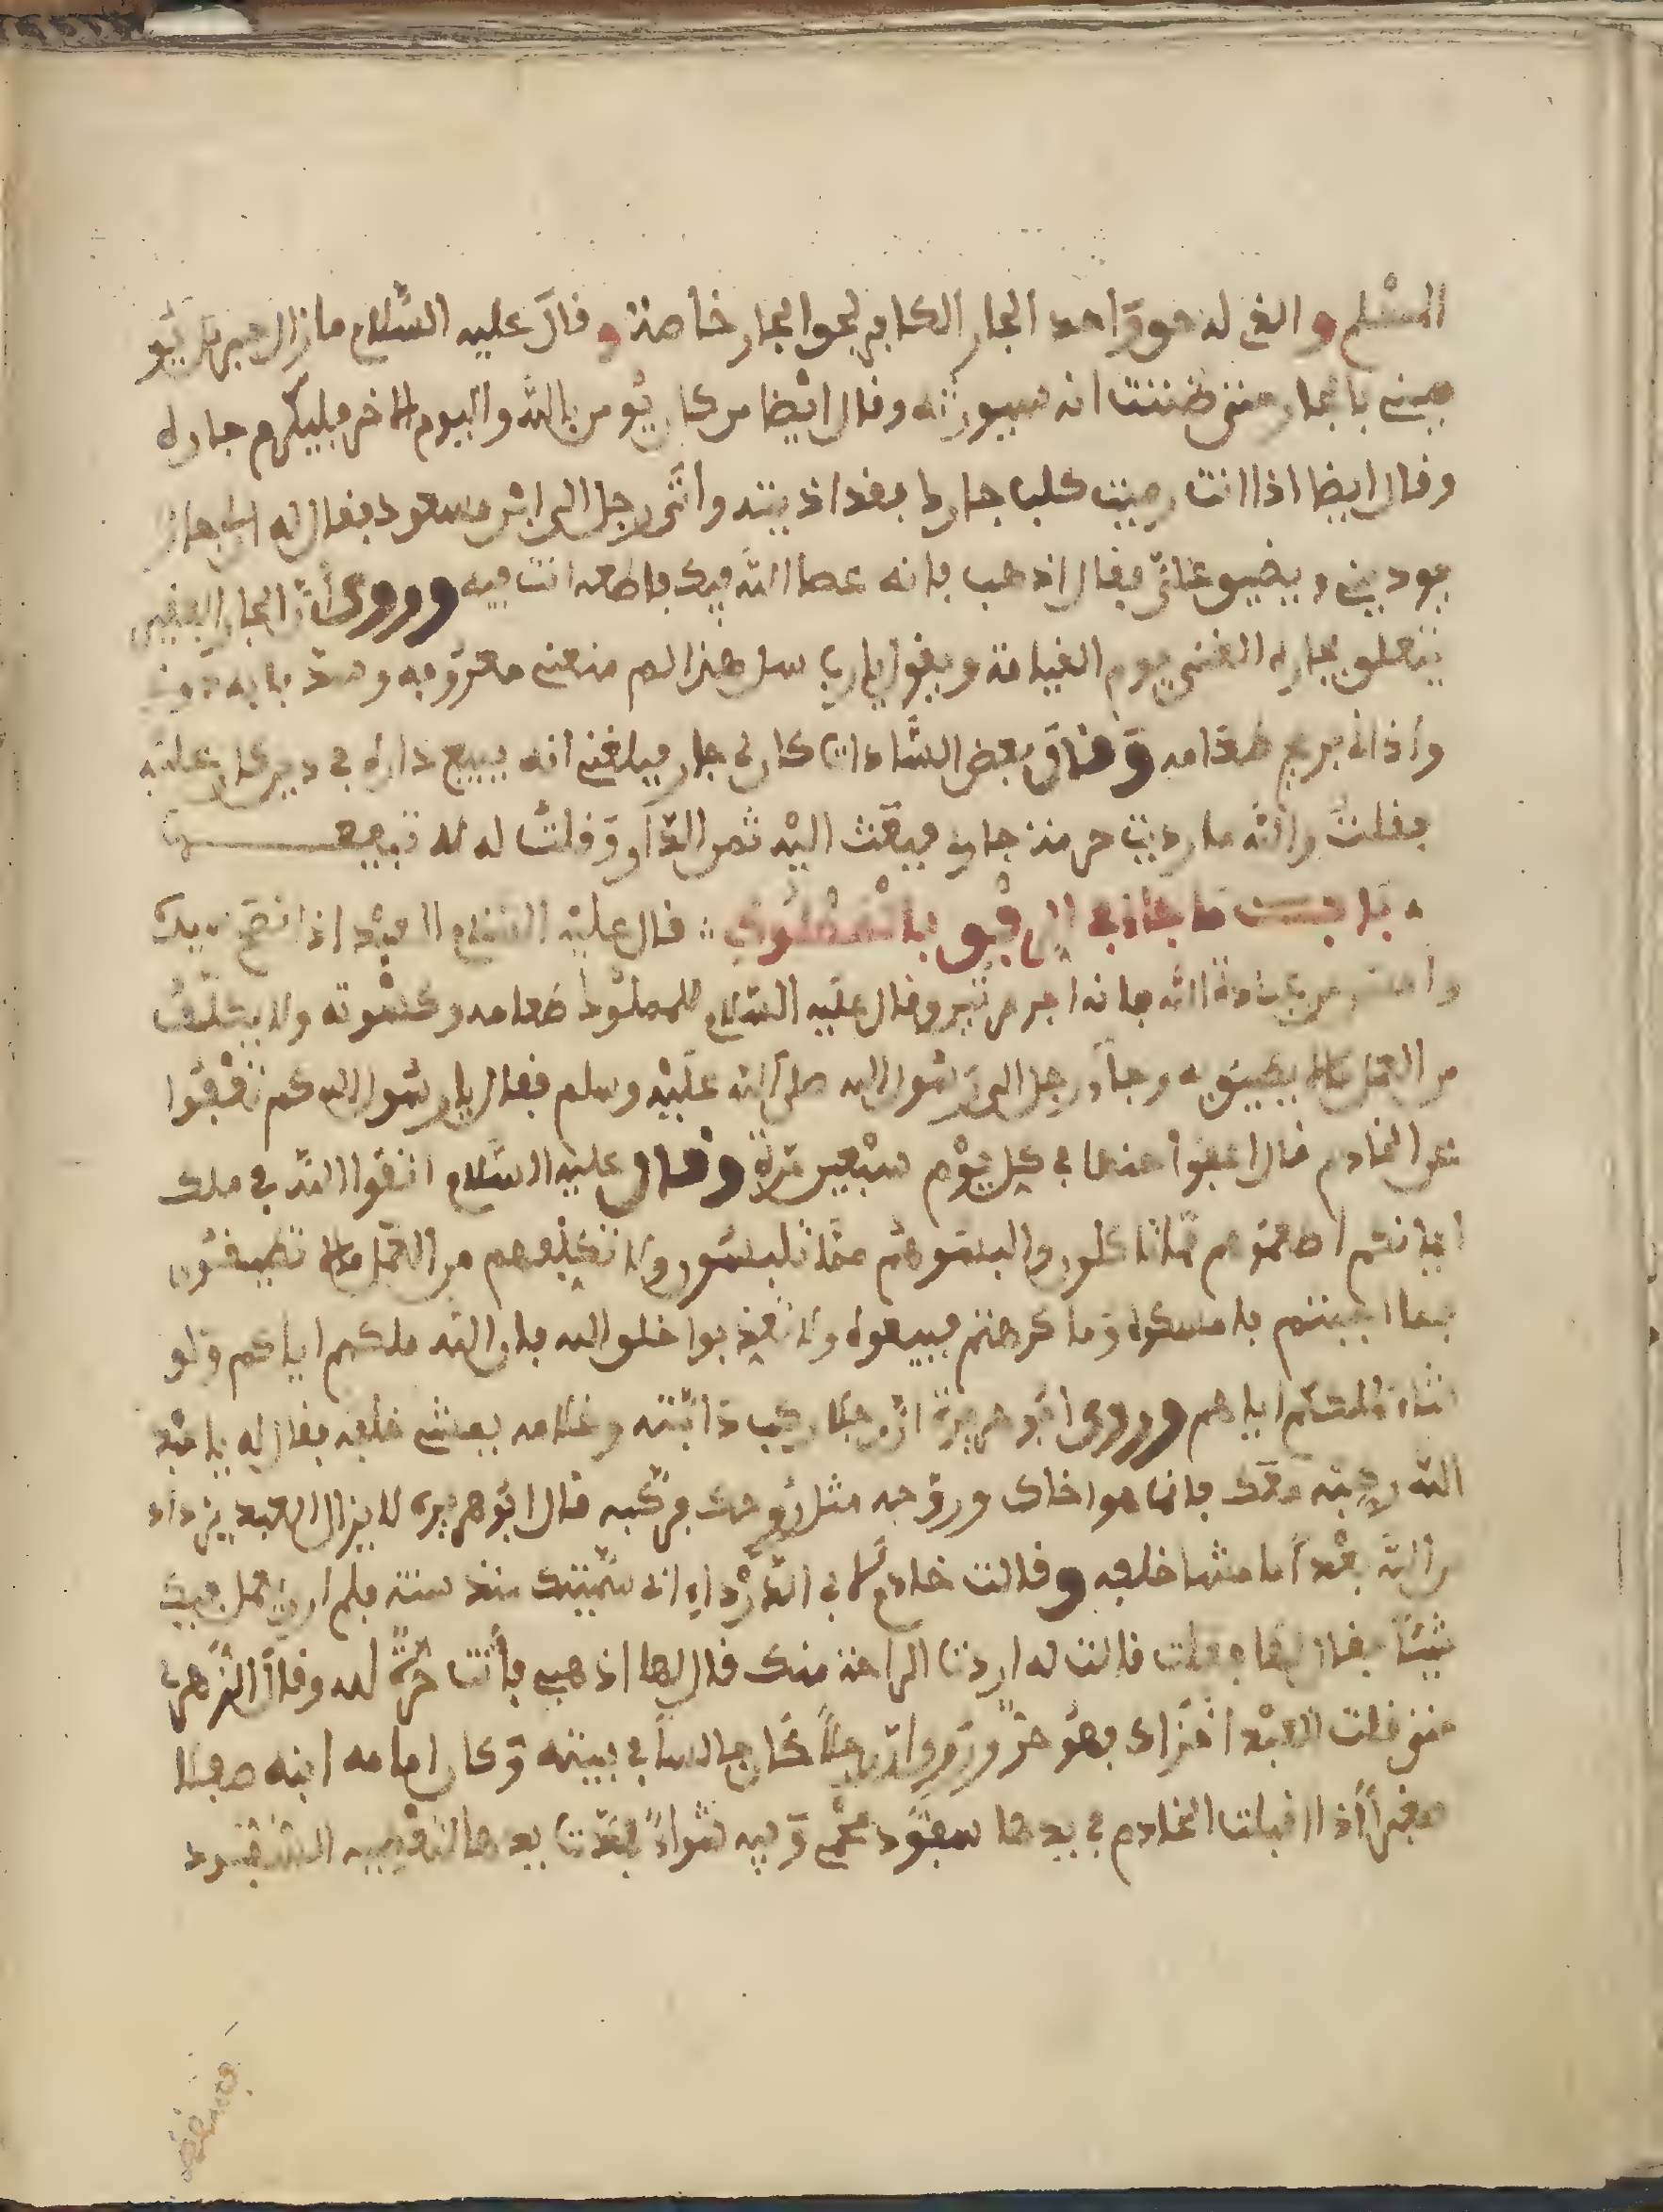 المسلم والذي له حق واحد الجار الكافر لحق الجار خاصة وقال عليه السلام ما زال جبريل يو
صيني بالجار حتى ظننت انه سيورثه وقال ايضا من كان يؤمن بالله واليوم الاخر فليكرم جاره
وقال ايضا اذا انت رميت كلب جارك فقد اذيته واتى رجل الى ابن مسعود فقال له ان جار
يوديني ويضيق علي فقال اذهب فانه عصا الله فيك فاطعه انت فيه وروى أن الجار الفقير
يتعلق بجاره الغني يوم القيامة ويقول يا رب سل هذا لم منعني معروفه وسد بابه دوني
واذاني بريح طعامه وقال بعض السادات كان لي جار فبلغني انه يبيع داره في دين كان عليه
فقلت والله ما رديت حرمة جاري فبعثت اليه ثمن الدار وقلت له لا تبيعها
باب ما جاء في الرفق بالمملوك قال عليه السلام العبد اذا نصح سيده
واحسن عبادة الله فانه اجر مرتين وقال عليه السلام للمملوك طعامه وكسوته ولا يكلف
من العمل ما لا يطيق به وجاء رجل الى رسول الله صلى الله عليه وسلم فقال يا رسول الله كم تعفوا
عن الخادم قال اعفوا عنها في كل يوم سبعين مرة وقال عليه السلام اتقوا الله في ملك
ايمانكم اطعموهم مما تاكلون والبسوهم مما تلبسون ولا تكلفوهم من العمل ما لا تطيقون
فما احببتم فامسكوا وما كرهتم فبيعوا ولا تعذبوا خلق الله فان الله ملكهم اياكم ولو
شاء لملككم اياهم وروى ابو هريرة ان رجلا ركب دابته وغلامه يمشي خلفه فقال له يا عبد
الله ركبه معك فانما هو اخاك وروحه مثل روحك فركبه قال ابو هريرة لا يزال العبد يزداد
من الله بعدا ما مشا خلفه وقالت خادم لابي الدرداء اني سميتك منذ سنة فلم ار يعمل فيك
شيئا فقال لها لم فعلت قالت له اردت الراحة منك قال لها اذهبي فأنت حرة لله وقال الزهري
متى قلت للعبد اخزاك فهو حر وروي ان رجلا كان جالسا في بيته وكان امامه ابنه طفلا
صغيرا اذ اقبلت الخادم في يدها سفود محمي وفيه شواء فمدت يدها لتقريبه السفود